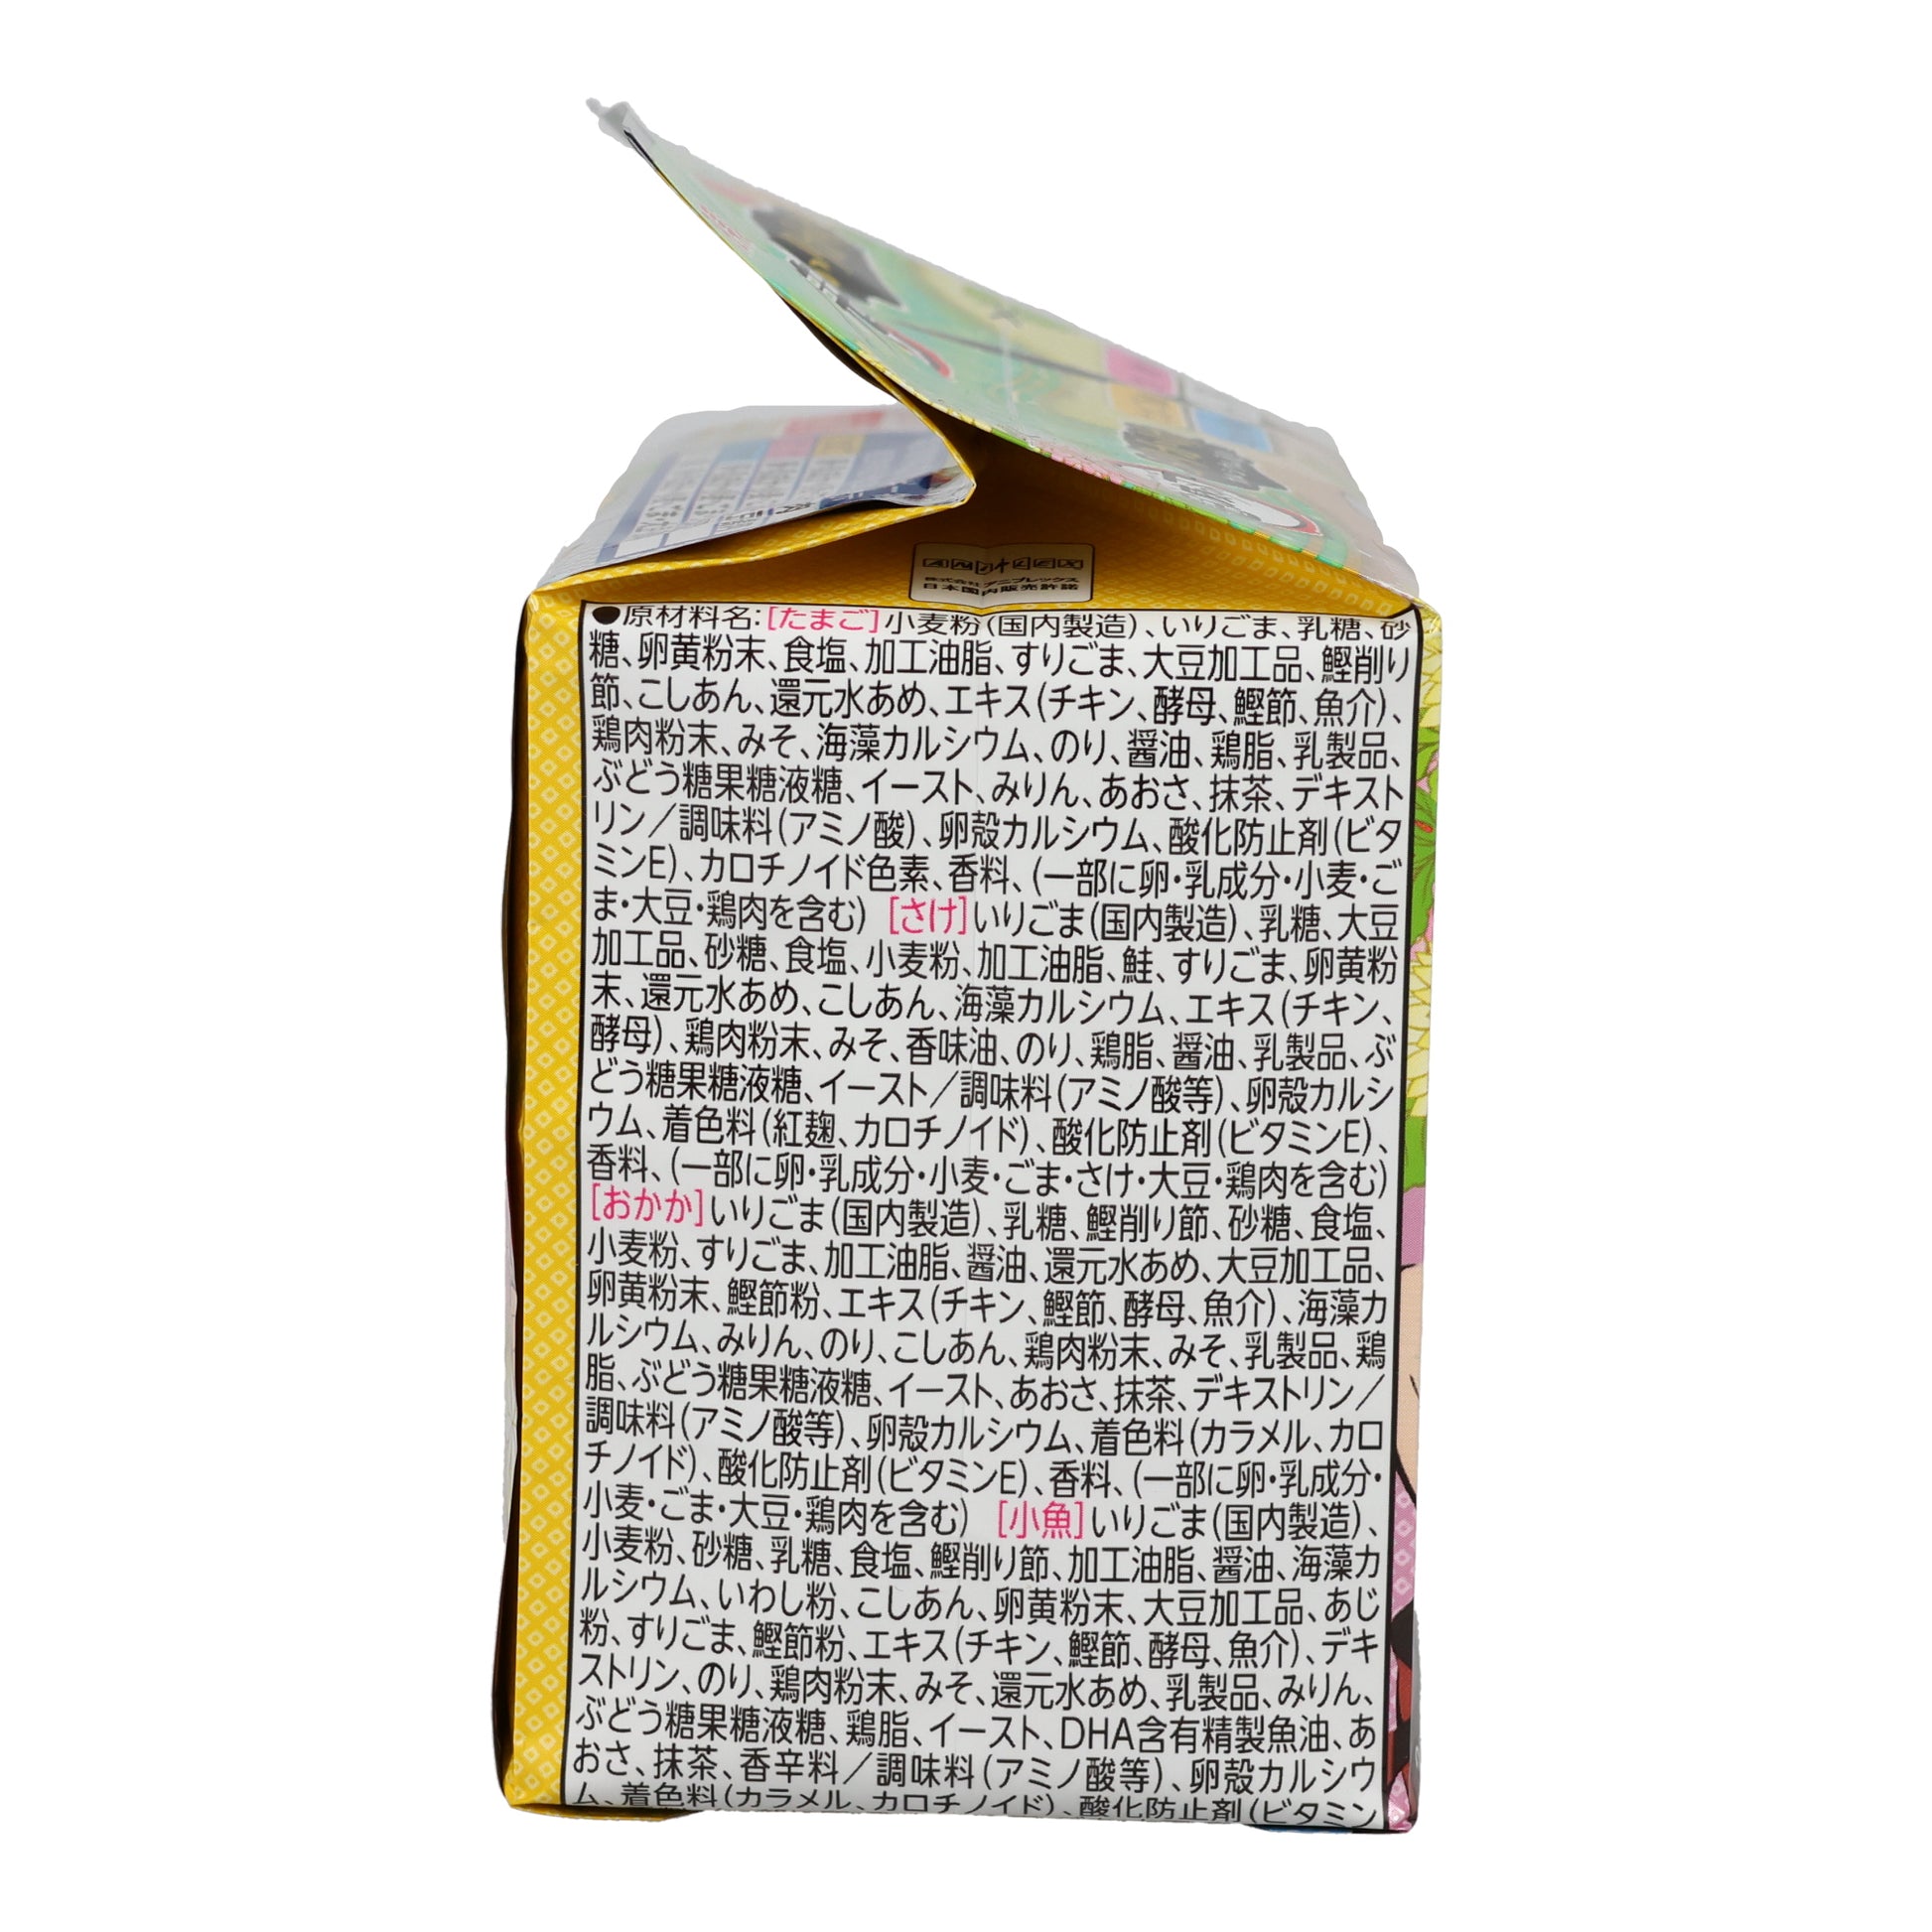 ANIPLEX
株式会社アニプレックス
日本国内販売許諾
●原材料名:[たまご]小麦粉(国内製造)、いりごま、乳糖、砂
糖、卵黄粉末、食塩、加工油脂、すりごま、大豆加工品、鰹削り
節、こしあん、還元水あめ、エキス(チキン、酵母、鰹節、魚介)、
鶏肉粉末、みそ、海藻カルシウム、のり、醤油、鶏脂、乳製品、
ぶどう糖果糖液糖、イースト、みりん、あおさ、抹茶、デキスト
リン／調味料(アミノ酸)、卵殻カルシウム、酸化防止剤(ビタ
ミンE)、カロチノイド色素、香料、(一部に卵・乳成分・小麦・ご
ま・大豆・鶏肉を含む) [さけ]いりごま(国内製造)、乳糖、大豆
加工品、砂糖、食塩、小麦粉、加工油脂、鮭、すりごま、卵黄粉
末、還元水あめ、こしあん、海藻カルシウム、エキス(チキン、
酵母)、鶏肉粉末、みそ、香味油、のり、鶏脂、醤油、乳製品、ぶ
どう糖果糖液糖、イースト／調味料(アミノ酸等)、卵殻カルシ
ウム、着色料(紅麹、カロチノイド)、酸化防止剤(ビタミンE)、
香料、(一部に卵・乳成分・小麦・ごま・さけ・大豆・鶏肉を含む)
[おかか]いりごま(国内製造)、乳糖、鰹削り節、砂糖、食塩、
小麦粉、すりごま、加工油脂、醤油、還元水あめ、大豆加工品、
卵黄粉末、鰹節粉、エキス(チキン、鰹節、酵母、魚介)、海藻カ
ルシウム、みりん、のり、こしあん、鶏肉粉末、みそ、乳製品、鶏
脂、ぶどう糖果糖液糖、イースト、あおさ、抹茶、デキストリン／
調味料(アミノ酸等)、卵殻カルシウム、着色料(カラメル、カロ
チノイド)、酸化防止剤(ビタミンE)、香料、(一部に卵・乳成分・
小麦・ごま・大豆・鶏肉を含む) [小魚]いりごま(国内製造)、
小麦粉、砂糖、乳糖、食塩、鰹削り節、加工油脂、醤油、海藻カ
ルシウム、いわし粉、こしあん、卵黄粉末、大豆加工品、あじ
粉、すりごま、鰹節粉、エキス(チキン、鰹節、酵母、魚介)、デキ
ストリン、のり、鶏肉粉末、みそ、還元水あめ、乳製品、みりん、
ぶどう糖果糖液糖、鶏脂、イースト、DHA含有精製魚油、あ
おさ、抹茶、香辛料／調味料(アミノ酸等)、卵殻カルシウ
ム、着色料(カラメル、カロチノイド)、酸化防止剤(ビタミン